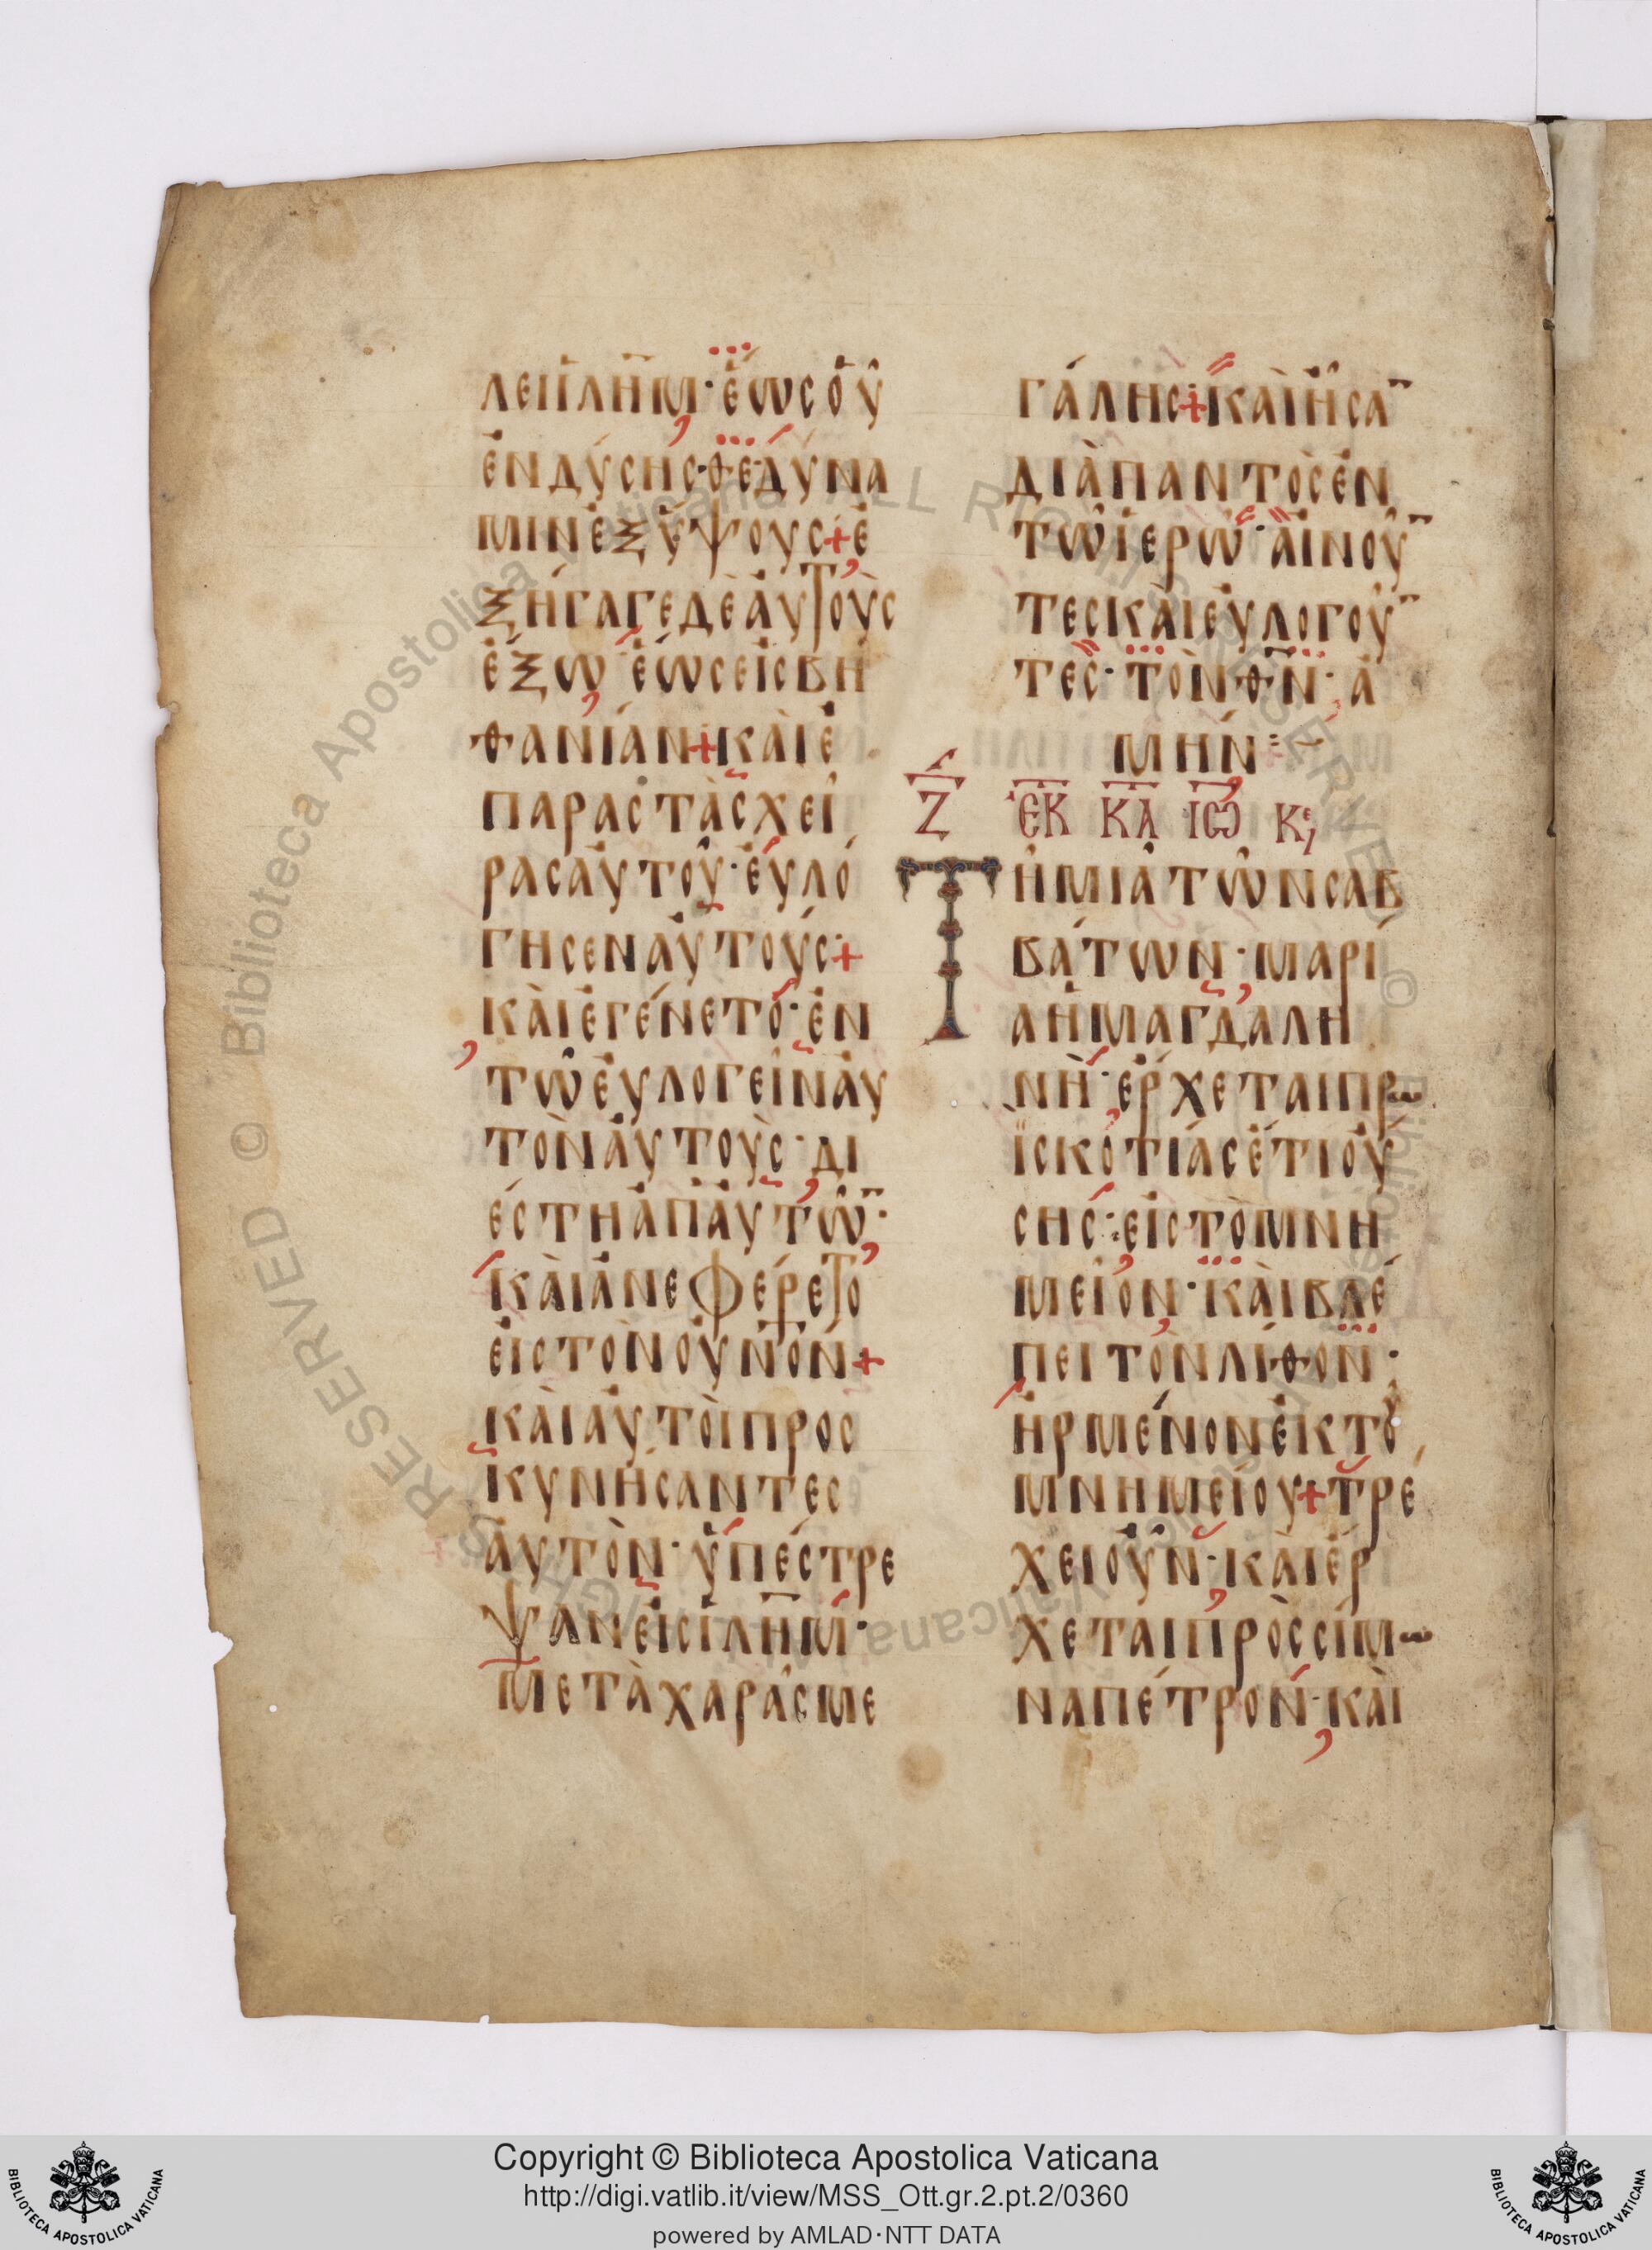 ΛΕΙ ΙΛΗΜ· ἕως οὗ
ἐνδύσησθε δύνα
μιν ἐξ ὕψους + ἐ
ξήγαγε δὲ αὐτοὺς
ἔξω ἕως εἰς βη
θανίαν + καὶ ἐ
παρας τὰς χεῖ
ρας αὐτοῦ· εὐλό
γησεν αὐτούς +
καὶ ἐγένετο· ἐν
τῶ εὐλογεῖν αὐ
τὸν αὐτοὺς· δι
έστη ἀπ αὐτῶ̅·
καὶ ἀνεφέρετο
εἰς τὸν οὐνόν +
καὶ αὐτοὶ προς
κυνήσαντες
αὐτὸν· ὑπέστρε
ψαν εἰς ΙΛΗΜ·
μετὰ χαρᾶς με
γάλης + καὶ ἦσα̅
διὰ παντὸς ἐν
τῶ ἱερῶ· αἰνοῦ̅
τες καὶ εὐλογοῦ̅
τες· τὸν ΘΝ· ἀ
μήν
Ζ ἐκ κΑ ΙΩ Κε,
Τῆ μιᾶ τῶν σαβ
βάτων· μαρί
α ἡ μαγδαλη
νὴ· ἔρχεται πρω
ὶ σκοτίας ἔτι οὔ
σης· εἰς τὸ μνη
μεῖον· καὶ βλέ
πει τὸν λίθον·
ἠρμένον ἐκ τοῦ
μνημείου + τρέ
χει οὖν· καὶ ἔρ
χεται πρὸς σίμω
να πέτρον· καὶ
Copyright © Biblioteca Apostolica Vaticana
http://digi.vatlib.it/view/MSS_Ott.gr.2.pt.2/0360
powered by AMLAD·NTT DATA
BIBLIOTECA APOSTOLICA VATICANA
BIBLIOTECA APOSTOLICA VATICANA